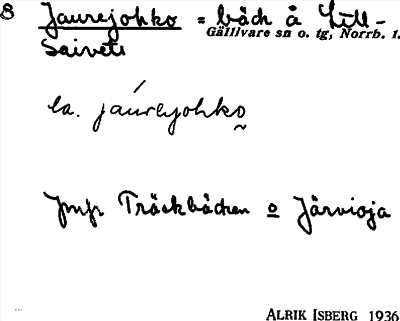 8 Jaurejohko = bäck å Lill-
Gällivare sn o. tg, Norrb. l.
Saivets
la. jáurejohko
Jmfr Träskbäcken o Järvioja
ALRIK ISBERG 1936